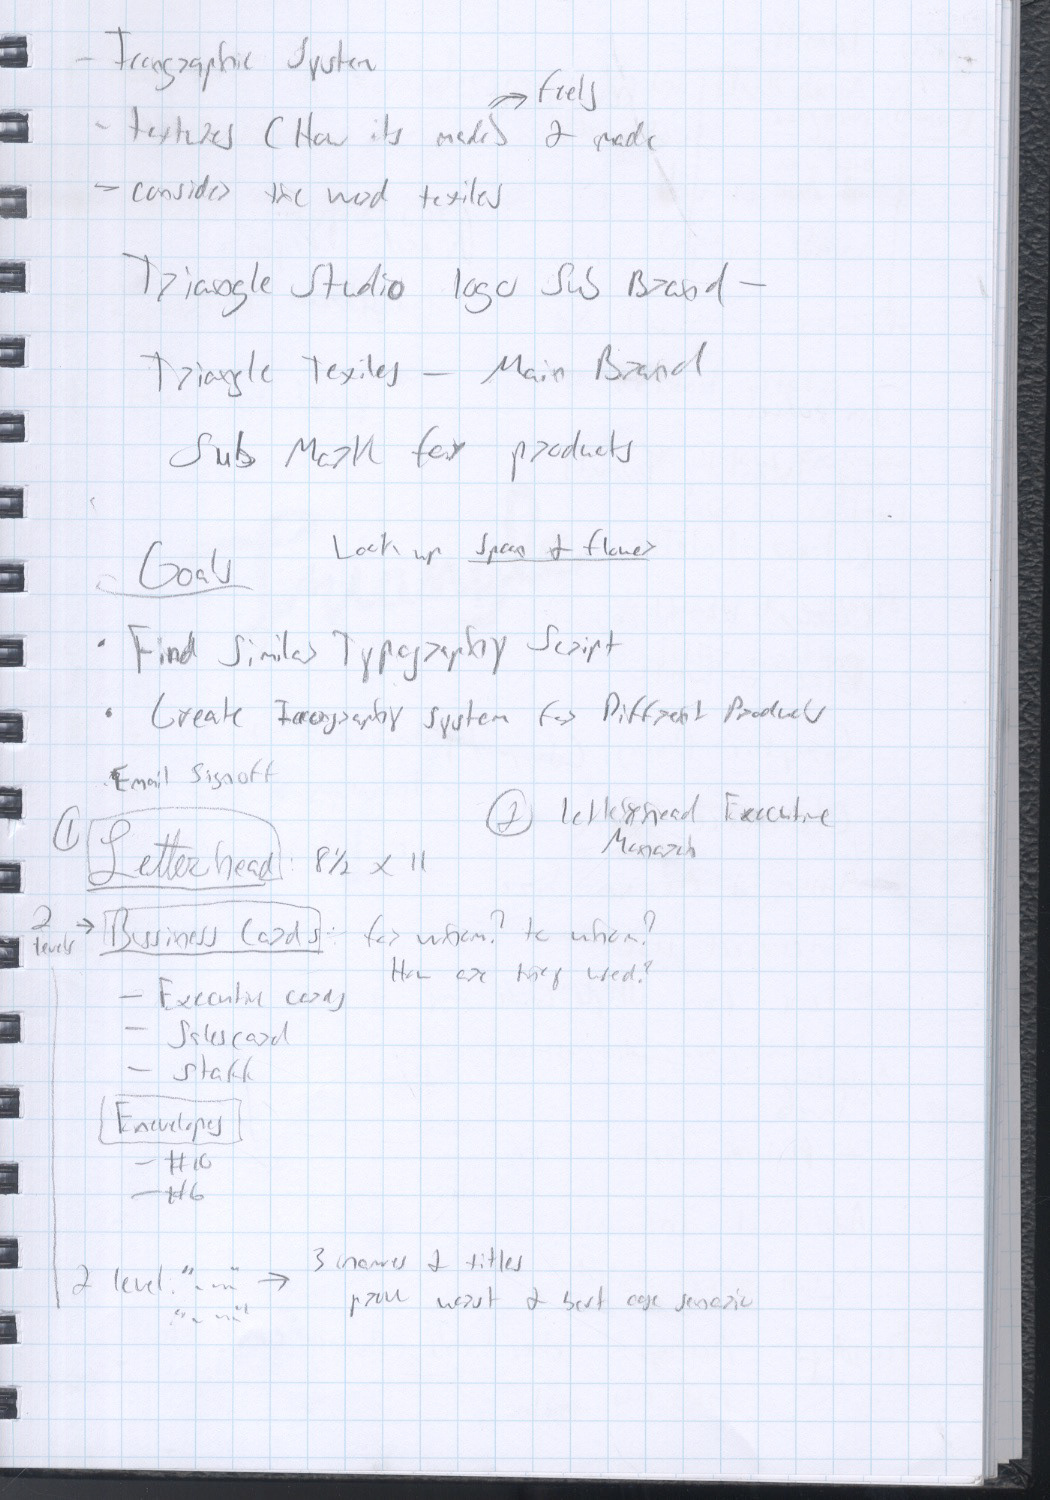 - Iconographic System
→ feels
- textures (How its made) & made
- consider the word textiles
Triangle Studio logo Sub Brand -
Triangle Textiles - Main Brand
Sub Mark for products
Goals
Look up & flower
• Find Similar Typography Script
• Create Iconography system for Different Products
Email Signoff
① Letterhead: 8½ x 11
② Letterhead Executive
Monarch
2 levels → Bussiness Cards: for whom? to whom?
How are they used?
- Executive cards
- Salescard
- Staff
Envelopes
- #10
- #6
2 level: → 3 names & titles
worst & best case